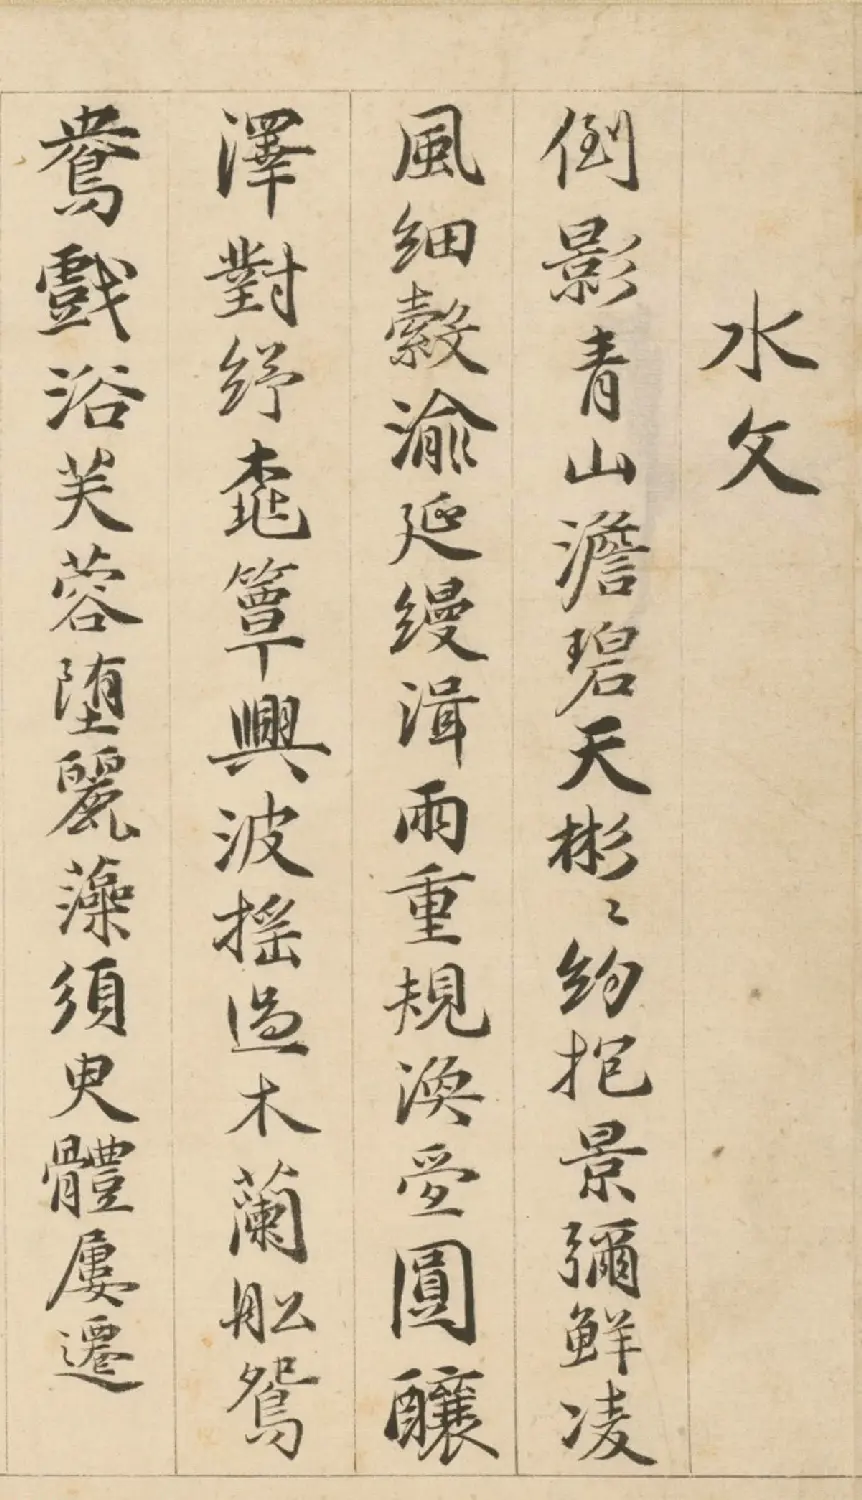 水文
倒影青山澹碧天彬〻約抱景彌鮮凌
風細縠渝延縵湒雨重規渙愛圓釀
澤對紓桃簟興波搖過木蘭船鴛
鴦戲浴芙蓉墮麗藻須臾體屢遷